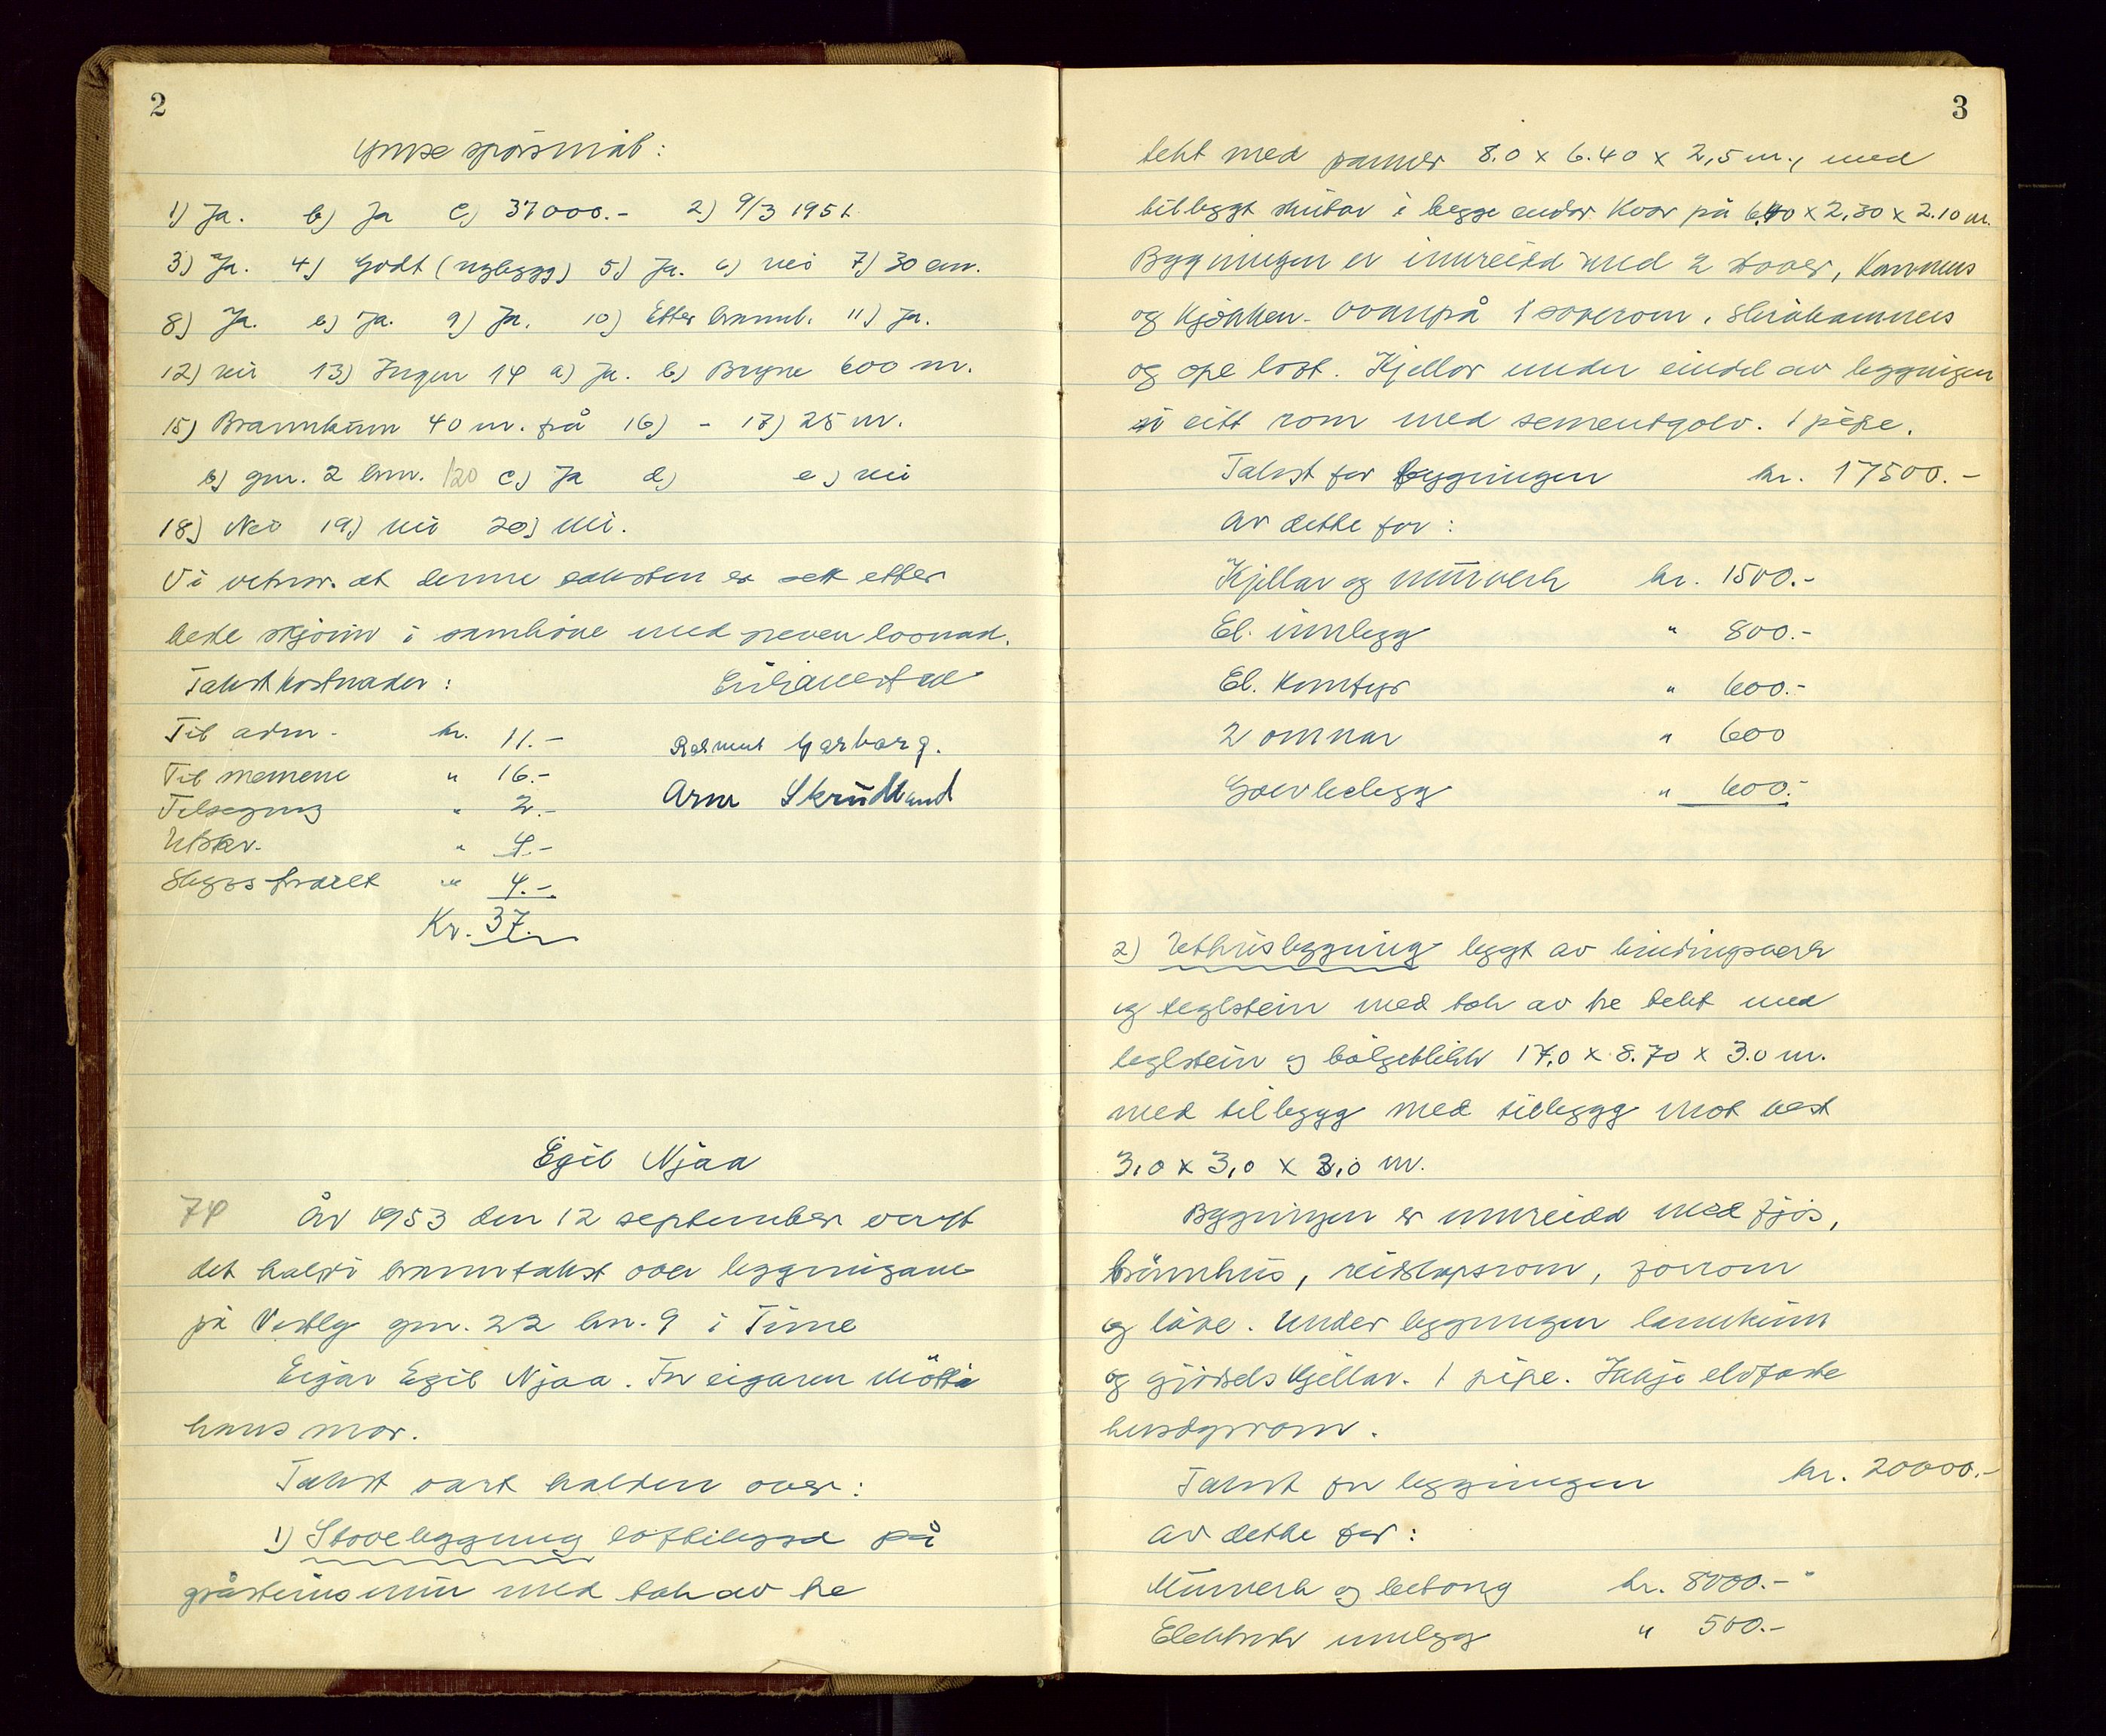 2
Ymse spörsmål:
1) Ja. b) Ja c) 37000.- 2) 9/3 1951
3) Ja. 4) Godt (nybygg) 5) Ja. 6) nei 7) 30 cm.
8) Ja. b) Ja. 9) Ja. 10) Etter brannl. 11) Ja.
12) nei 13) Ingen 14 a) Ja. b) Bryne 600 m.
15) Brannkum 40 m. frå 16) - 17) 25 m.
b) gnr. 2 bnr. 120 c) Ja d) e) nei
18) Nei 19) nei 20) nei.
Vi vitnar at denne taksten er sett etter
beste skjönn i samhöve med neven loonad.
Takstkostnader:
Til adm. kr. 11.-
Til mennene " 16.-
Rasmus Garborg.
Tilseging " 2.-
Arne Skrudland
Utskr. " 4.-
Skyssfradelt " 4.-
Kr. 37.-
Egil Njaa
74 År 1953 den 12 september vart
det haldi branntakst over bygningane
på Vestly gnr. 22 bnr. 9 i Time
Eigar Egil Njaa. For eigaren mötte
hans mor.
Takst vart halden over:
1) Stovebygning loftbygd på
gråsteinsmur med tak av tre
3
tekt med panner 8.0 x 6.40 x 2,5 m., med
tilbygt skutar i begge endar kvar på 6.40 x 2,30 x 2.10 m.
Bygningen er innreidd med 2 stover, kammers
og kjökken. ovanpå 1 soverom, skråkammers
og ope loft. Kjellar under eindel av bygningen
i eitt rom med sementgolv. 1 pipe.
Takst for bygningen kr. 17500.-
av dette for:
Kjellar og murverk kr. 1500.-
El. innlegg " 800.-
El. komfyr " 600.-
2 omnar " 600
Golvbelegg " 600.-
2) Uthusbygning bygt av bindingsverk
og teglstein med tak av tre tekt med
teglstein og bölgeblikk 17.0 x 8.70 x 3.0 m.
med tilbygg med tilbygg mot vest
3,0 x 3,0 x 3,0 m.
Bygningen er innreidd med fjös,
brönnhus, reidskapsrom, forrom
og löve. Under bygningen landkum
og gjödselskjellar. 1 pipe. Ikkje eldfaste
husdyrrom.
Takst for bygningen kr. 20000.-
av dette for:
Murverk og betong kr. 8000.-
Elektrisk innlegg " 500.-